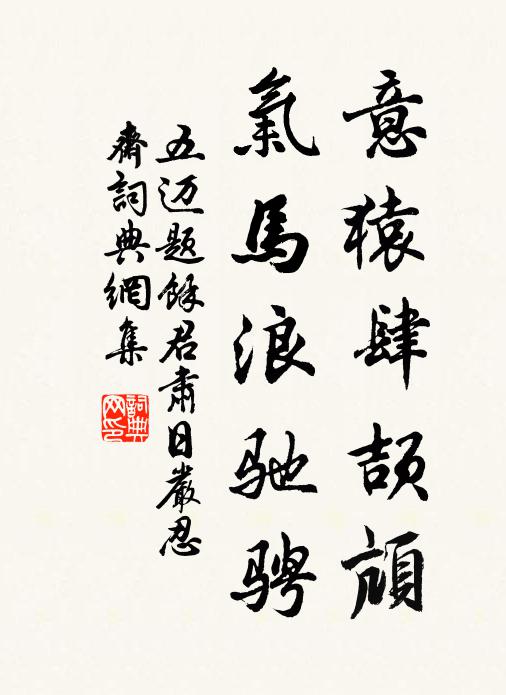 意猿肆頡頏
氣馬浪驰骋
五迈题餘君肅日嚴忍
齋詞典網集
詞典网印